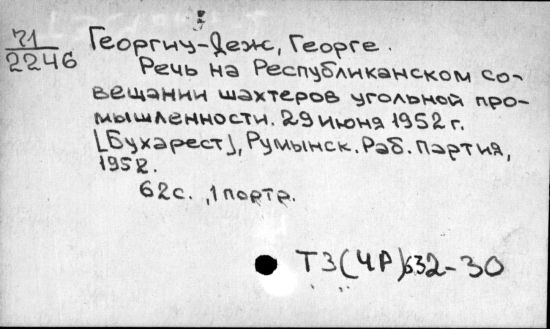 71
2246
Георгиу-Деж, Георге.
Речь на Республиканском со-
вещании шахтеров угольной про-
мышленности. 29 июня 1952 г.
[Бухарест], Румынск. Раб. партия,
1952.
62с., 1 портр.
Т3(4Р)632-30